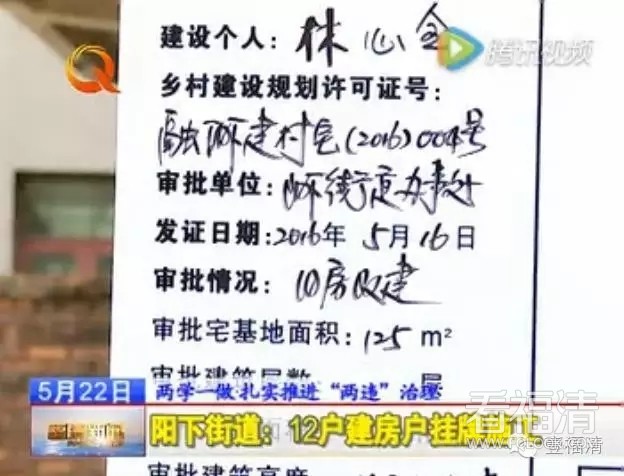 建设个人：林心全
腾讯视频
乡村建设规划许可证号：
融阳建村宅(2016)004号
审批单位：阳下街道办事处
发证日期：2016年5月16日
审批情况：旧房改建
审批宅基地面积：125 m²
审批建筑层数 层
5月22日
两学一做·扎实推进“两违”治理
看福清
阳下街道：12户建房户挂牌施工
壹福清
审批建筑高度 m